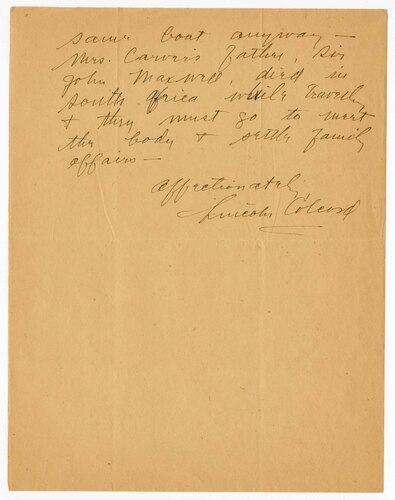 same boat anyway —
Mrs. Carver's father, Sir
John Maxwell, died in
South Africa while travelling
& they must go to meet
the body & settle family
affairs —
Affectionately,
Lincoln Colcord